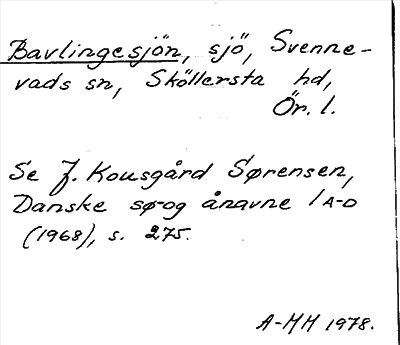 Bavlingesjön, sjö, Svenne-
vads sn, Sköllersta hd,
Ör. l.
Se J. Kousgård Sørensen,
Danske sø- og ånavne 1 A-D
(1968), s. 275.
A-MH 1978.